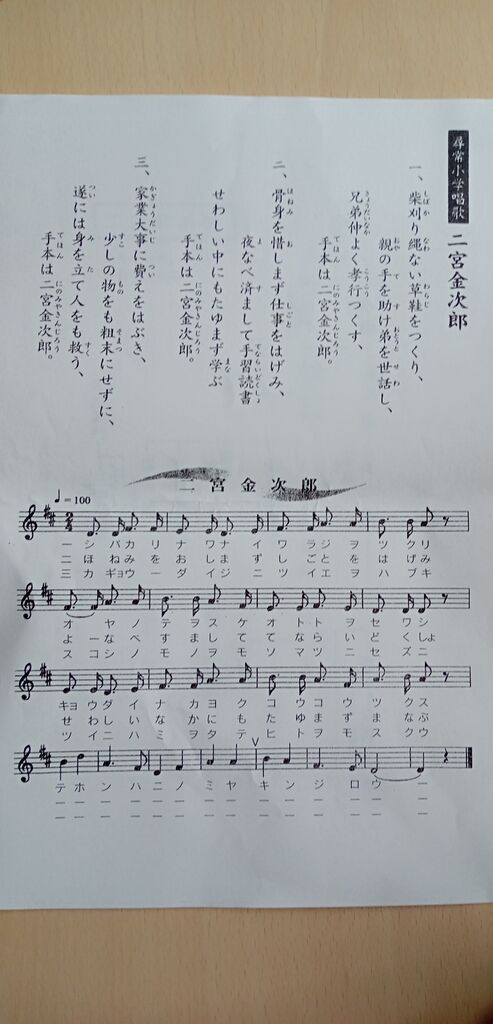 尋常小学唱歌 二宮金次郎
一、柴刈り縄ない草鞋をつくり、
親の手を助け弟を世話し、
兄弟仲よく孝行つくす、
手本は二宮金次郎。
二、骨身を惜しまず仕事をはげみ、
夜なべ済まして手習読書
せわしい中にもたゆまず学ぶ
手本は二宮金次郎。
三、家業大事に費えをはぶき、
少しの物をも粗末にせずに、
遂には身を立て人をも救う、
手本は二宮金次郎。
二宮金次郎
♩=100
一 シバカリ ナワナイ ワラジヲ ツクリ
二 ほねみを おしまず しごとを はげみ
三 カギョウ ダイジニ ツイエヲ ハブキ
オヤノ テヲ スケ オトトヲ セワシ
よなべ すまして てならい どくしょ
スコシノ モノヲモ ソマツニ セズニ
キョウダイ ナカヨク コウコウ ツクス
せわしい なかにも たゆまず まなぶ
ツイニハ ミヲタテ ヒトヲモ スクウ
テホンハニノミヤキンジロウ